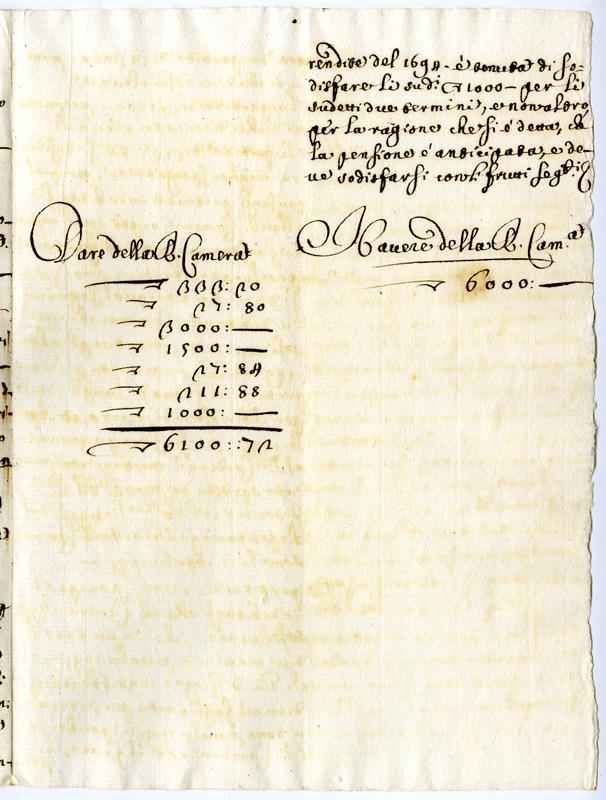 rendite del 1694 - è tenuta di so=
disfare li sud.i ▽ 1000 - per li
sudetti due termini, e non altro
per la ragione che si è detta, che
la pensione è anticipata, e de=
ve sodisfarsi con li frutti seg.ti
Dare della R. Camera
▽ 333: 20
▽ 27: 80
▽ 3000: —
▽ 1500: —
▽ 27: 84
▽ 211: 88
▽ 1000: —
▽ 6100:: 72
Havere della R. Cam.a
▽ 6000: —